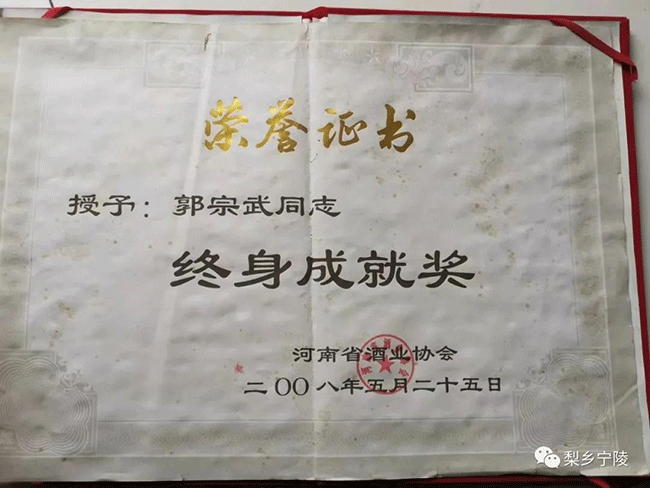 荣誉证书
授予：郭宗武同志
终身成就奖
河南省酒业协会
二OO八年五月二十五日
梨乡宁陵